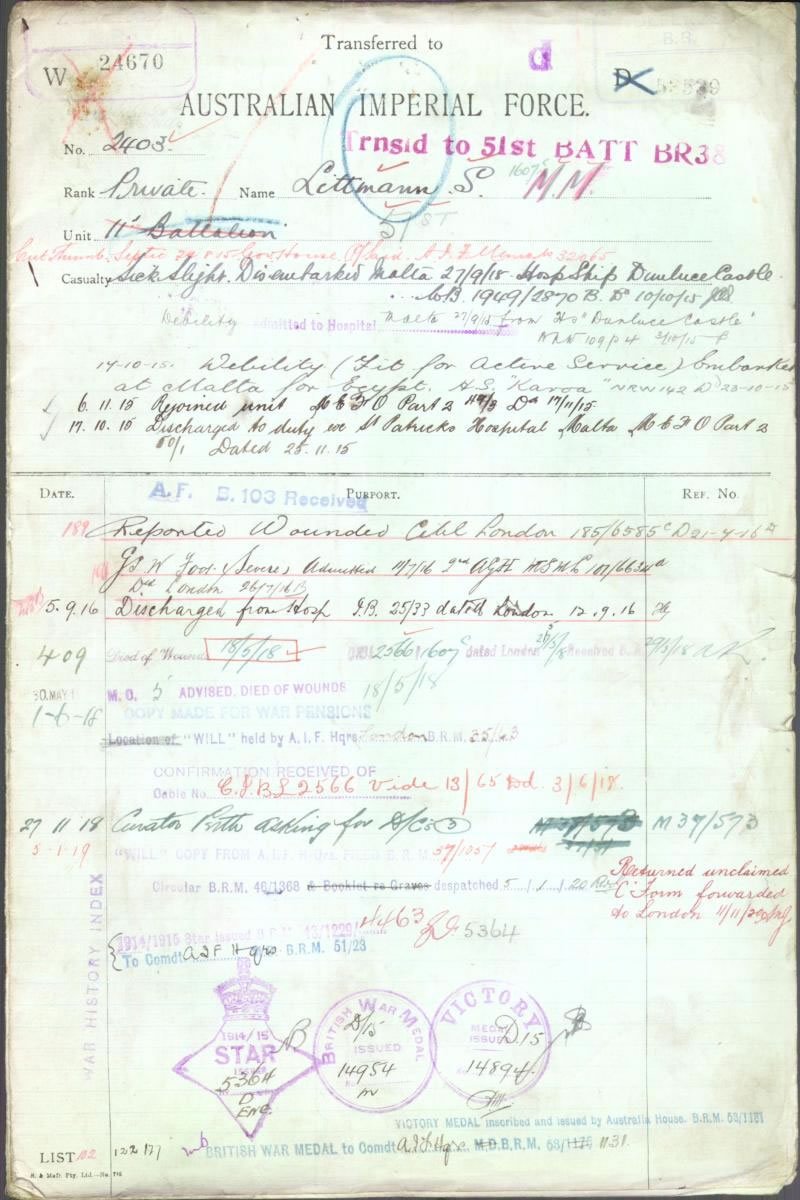 Transferred to
W 24670
d
AUSTRALIAN IMPERIAL FORCE.
No. 2403
Trnsfd to 51st BATT BR38
Rank Private. Name Littmann S. M.M.
Unit 11th Battalion 51ST
Cut Thumb. Septic
Casualty Sick Slight. Disembarked Malta 27/9/15 Hosp Ship Dunluce Castle.
1949/2870 B. D 10/10/15
Debility Admitted to Hospital Malta 27/9/15 from HS "Dunluce Castle"
17-10-15. Debility (Fit for Active Service) Embarked
at Malta for Egypt. H.S. "Karoa" NRW 142 D 23-10-15
6.11.15 Rejoined unit M E F O Part 2 D 17/11/15
17.10.15 Discharged to duty ex St Patricks Hospital Malta M E F O Part 2
50/1 Dated 25.11.15
DATE. PURPORT. REF. No.
A.F. B.103 Received
Reported Wounded Cable London 185/6585 D 21-7-16
GSW Foot (Severe) Admitted 11/7/16 2nd AGH
London 26/7/16
5.9.16 Discharged from Hosp I.B. 25/33 dated London 12.9.16
409 Died of Wounds 18/5/18 2566 1607 dated London Received B.R.
30 MAY M.O. 5 ADVISED, DIED OF WOUNDS 18/5/18
1-6-18 COPY MADE FOR WAR PENSIONS
Location of "WILL" held by A.I.F. Hqrs London B.R.M. 35/43
CONFIRMATION RECEIVED OF
Cable No. 2566 vide 13/65 Dd. 3/6/18.
27 11 18 Curator Perth asking for D/C M 37/573
5-1-19 "WILL" COPY FROM A.I.F. HQrs. FILED B.R.M. 57/1057
Circular B.R.M. 46/1368 & Booklet re Graves despatched 5/1/20
Returned unclaimed
"C" Form forwarded
to London 4/11/20
1914/1915 Star issued B.R.M. 43/1229/4463 5364
To Comdt AIF Hqrs B.R.M. 51/23
WAR HISTORY INDEX
1914/15 STAR ISSUED 5364 D ENG.
BRITISH WAR MEDAL D/15 ISSUED 14954
VICTORY MEDAL ISSUED D.15 14894
VICTORY MEDAL inscribed and issued by Australia House. B.R.M. 53/1131
LIST 102 122 177 BRITISH WAR MEDAL to Comdt AIF Hqrs M.D.B.R.M. 53/1175 1131.